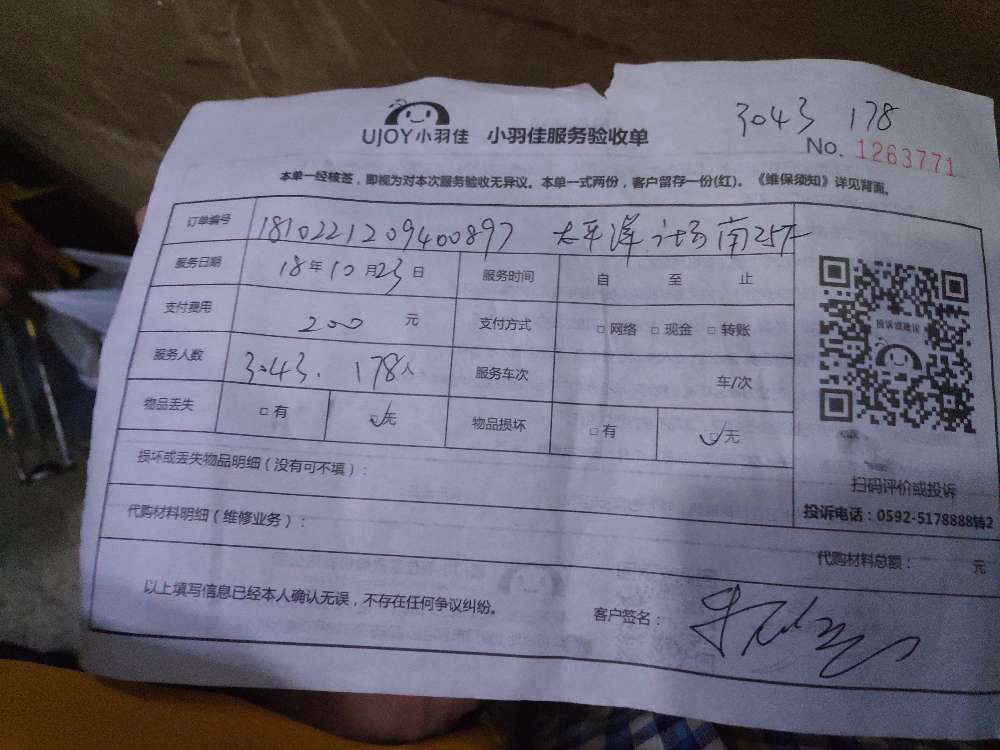 3043 178
UJOY小羽佳 小羽佳服务验收单
No. 1263771
本单一经核签，即视为对本次服务验收无异议。本单一式两份，客户留存一份(红)。《维保须知》详见背面。
订单编号 1810221209400897 太平洋
服务日期 18年10月23日 服务时间 自 至 止
支付费用 200 元 支付方式 □网络 □现金 □转账
投诉或建议
服务人数 3043. 178人 服务车次 车/次
物品丢失 □有 ☑无 物品损坏 □有 ☑无
损坏或丢失物品明细（没有可不填）：
扫码评价或投诉
代购材料明细（维修业务）：
投诉电话：0592-5178888转2
代购材料总额： 元
以上填写信息已经本人确认无误，不存在任何争议纠纷。
客户签名：